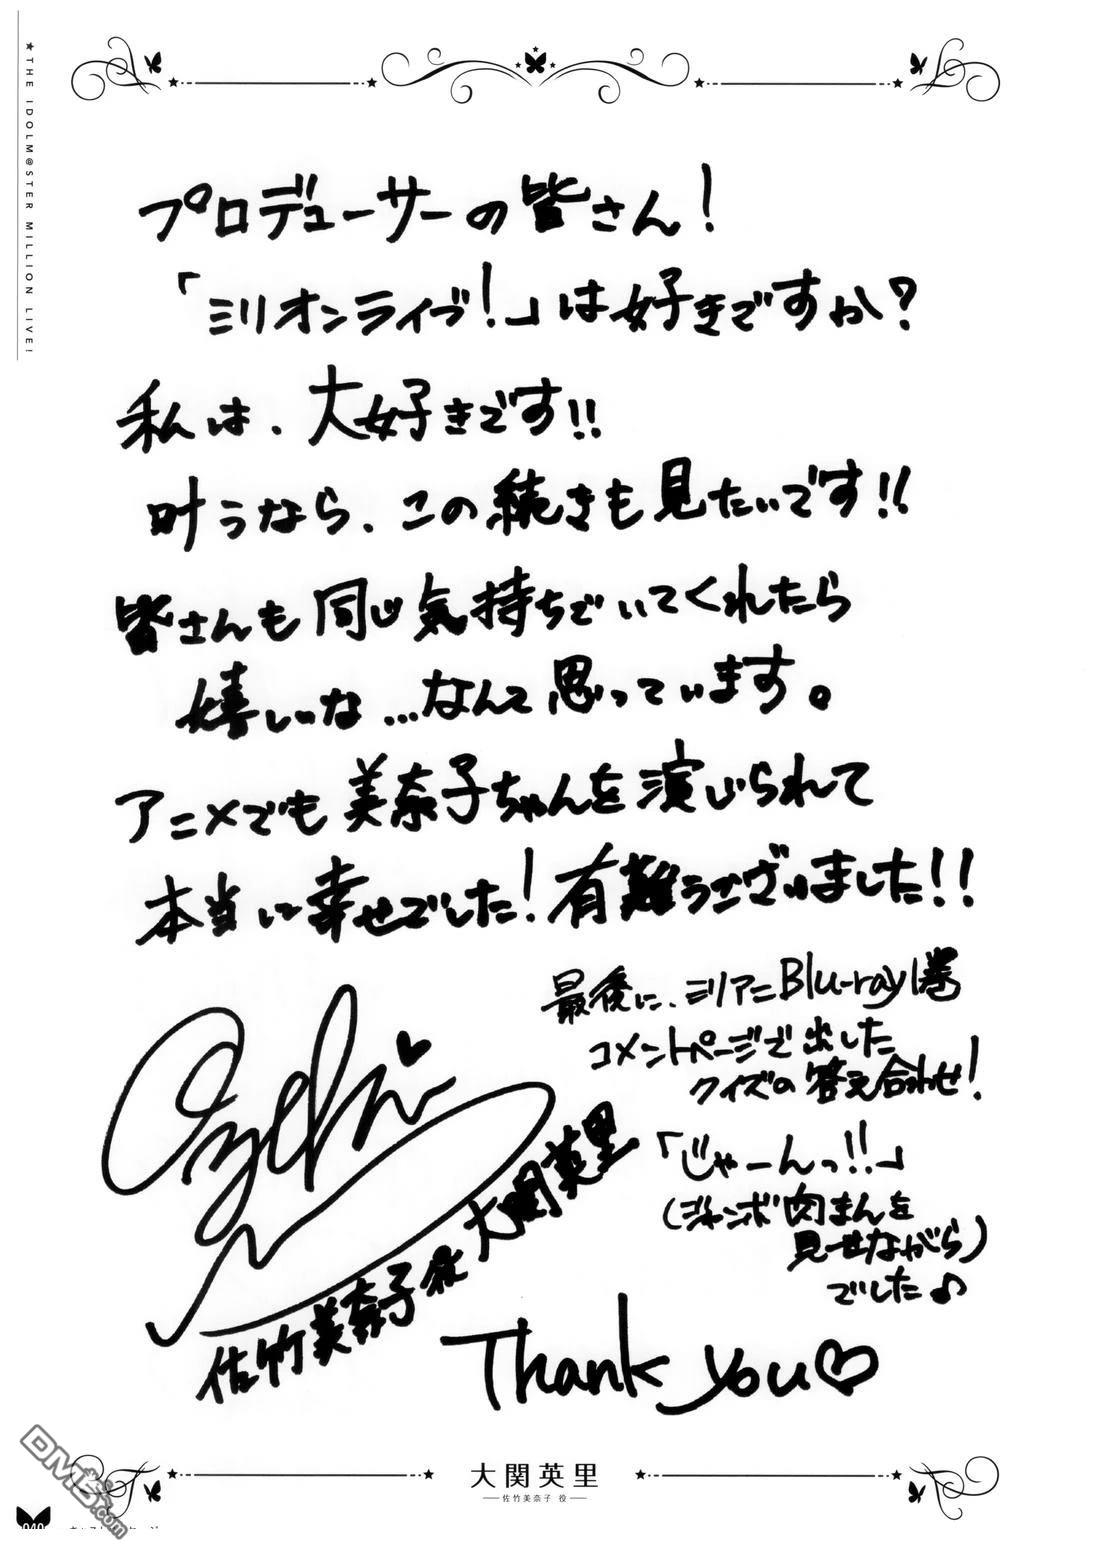 ★THE IDOLM@STER MILLION LIVE!
プロデューサーの皆さん!
「ミリオンライブ!」は好きですか?
私は、大好きです!!
叶うなら、この続きも見たいです!!
皆さんも同じ気持ちでいてくれたら
嬉しいな...なんて思っています。
アニメでも美奈子ちゃんを演じられて
本当に幸せでした!有難うございました!!
最後に、ミリアニBlu-ray1巻
コメントページで出した
クイズの答え合わせ!
「じゃーんっ!!」
(ジャンボ肉まんを
見せながら)
でした♪
佐竹美奈子役 大関英里
Thank you♡
大関英里
佐竹美奈子 役